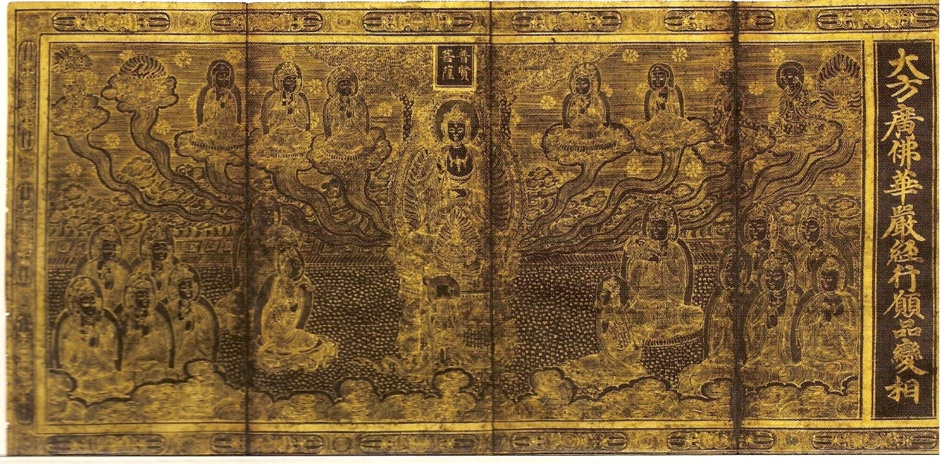 大方廣佛華嚴經行願品變相
普賢
菩薩